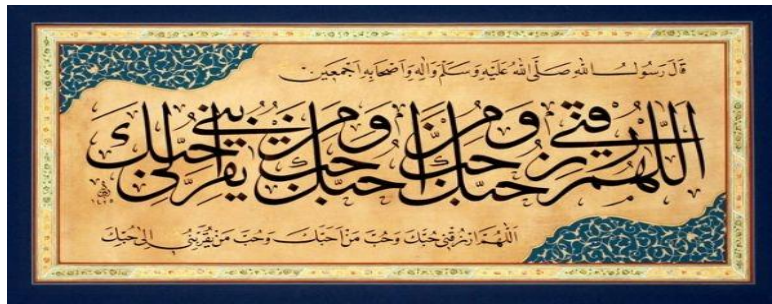 قَالَ رَسُولُ اللهِ صَلَّى اللهُ عَلَيْهِ وَسَلَّمَ وَآلِهِ وَاَصْحَابِهِ اَجْمَعِين
اللهم ارزقني حبك وحب من احبك وحب من يقربني الى حبك
اَللّٰهُمَّ ارْزُقْنِي حُبَّكَ وَحُبَّ مَنْ اَحَبَّكَ وَحُبَّ مَنْ يُقَرِّبُنِي اِلٰى حُبِّكَ